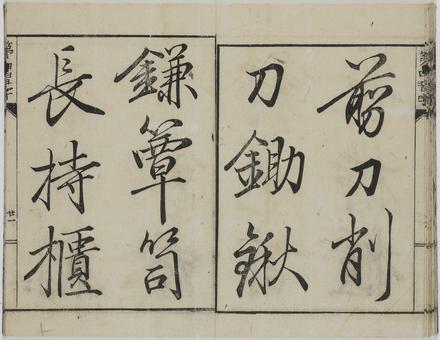 剪刀削
刀鋤鍬
鎌簞笥
長持櫃
廿一